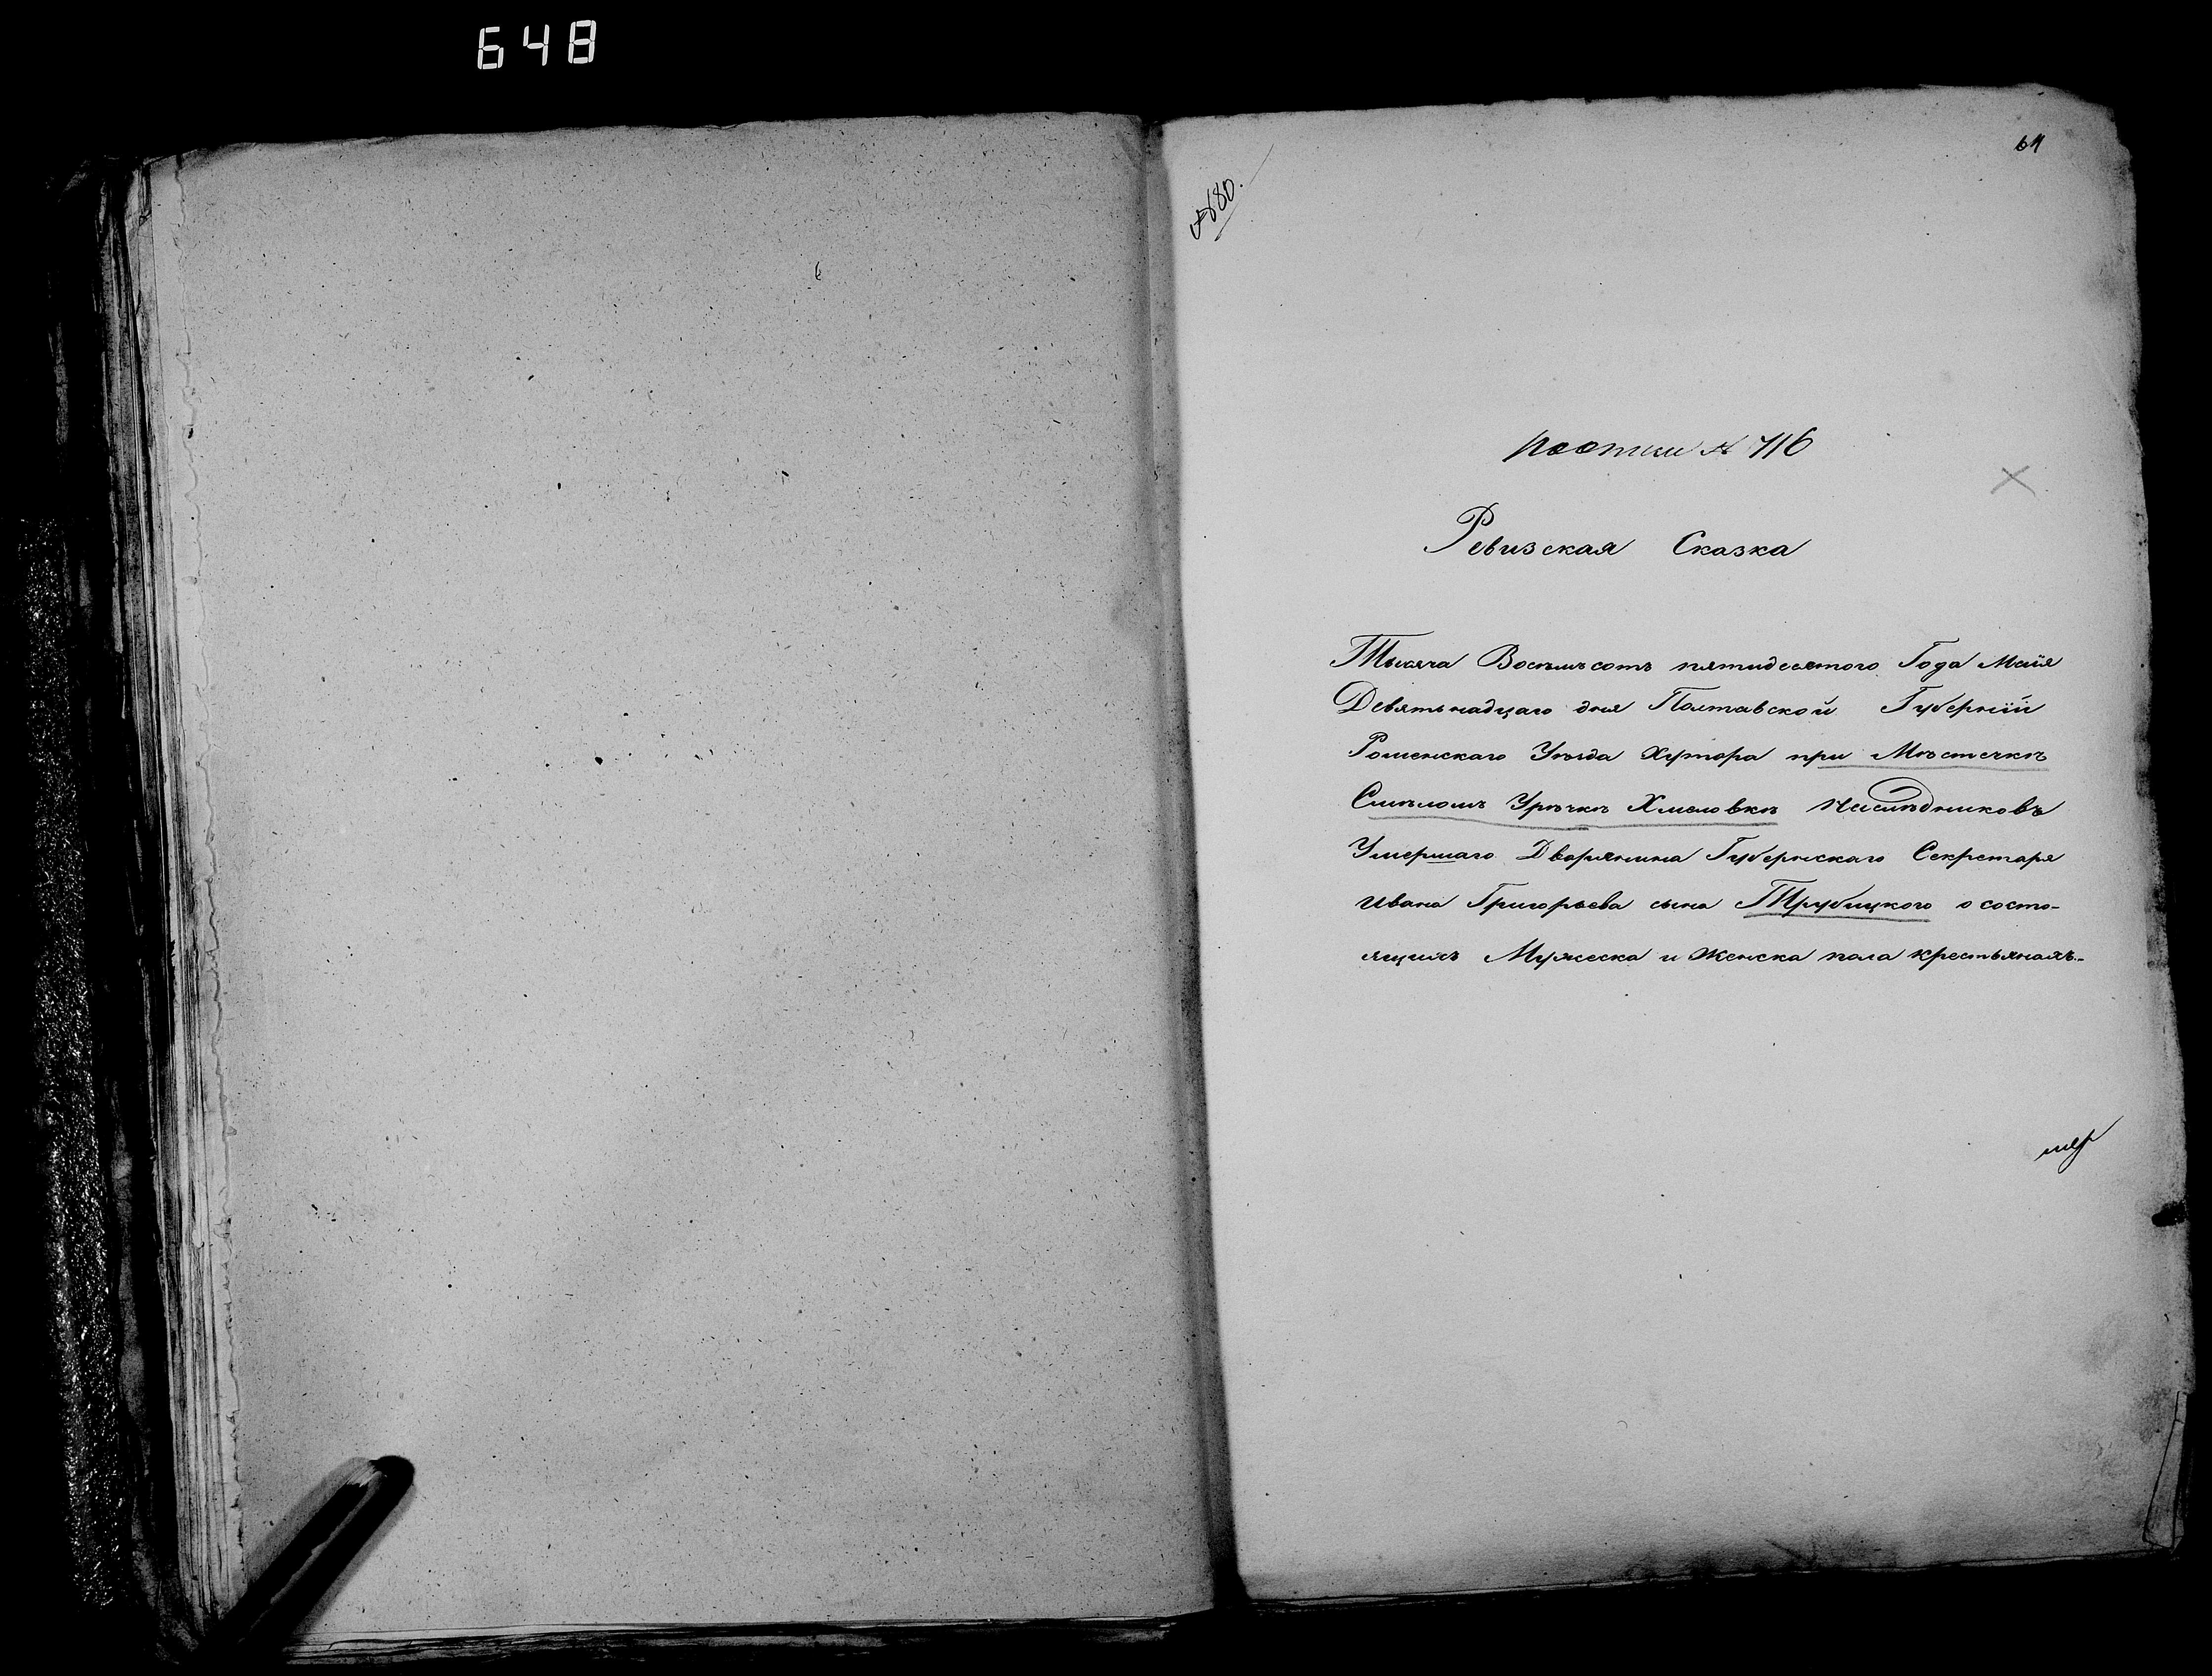 648
64
№680.
№ 716
Ревизская Сказка
Тысяча Восемьсотъ пятидесятого Года Маія
Девятьнадцаго дня Полтавской Губерніи
Роменскаго Уѣзда Хутора при Мѣстечкѣ
Смѣломъ Урѣчкѣ Хмеловкѣ Наслѣдниковъ
Умершаго Дворянина Губернскаго Секретаря
Ивана Григорьева сына Трубицкого о состо-
ящихъ Мужеска и Женска пола крестьянахъ.